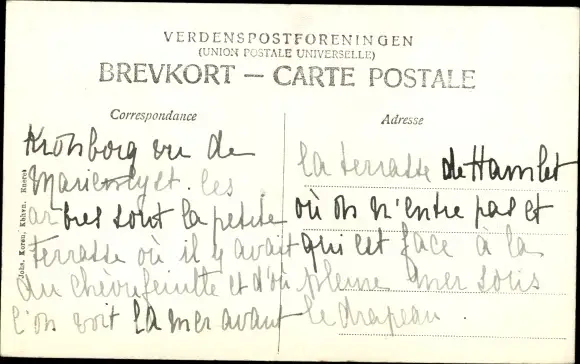 VERDENSPOSTFORENINGEN
(UNION POSTALE UNIVERSELLE)
BREVKORT — CARTE POSTALE
Correspondance
Adresse
Kronborg vu de
Marienlyst. les
arbres sont la petite
terrasse où il y avait
du chèvrefeuille et d'où
l'on voit la mer avant
la terrasse de Hamlet
où on n'entre pas et
qui est face à la
pleine mer sous
le drapeau.